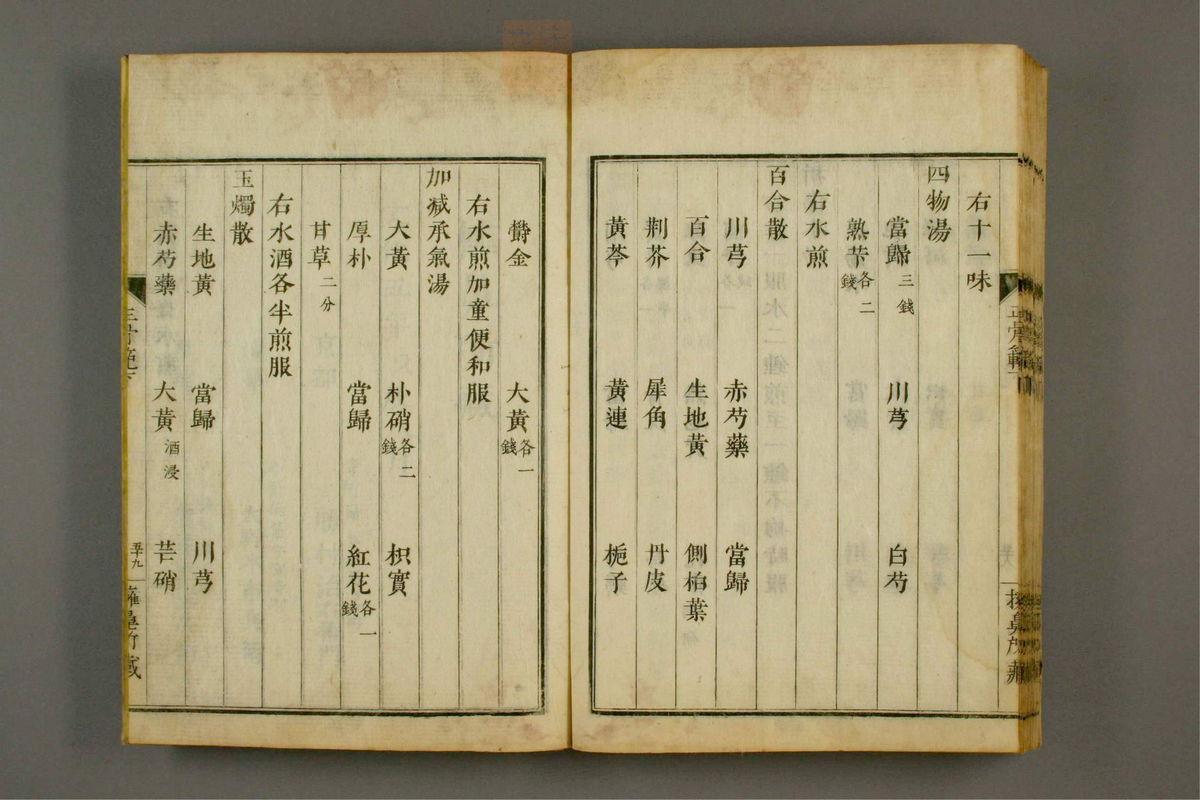 右十一味
四物湯
當歸三錢 川芎 白芍
熟芐各二錢
右水煎
百合散
川芎 赤芍藥 當歸
百合 生地黃 側柏葉
荆芥 犀角 丹皮
黃芩 黃連 梔子
欝金 大黃各一錢
右水煎加童便和服
加减承氣湯
大黃 朴硝各二錢 枳實
厚朴 當歸 紅花各一錢
甘草二分
右水酒各半煎服
玉燭散
生地黃 當歸 川芎
赤芍藥 大黃酒浸 芒硝
正骨範下
五十九